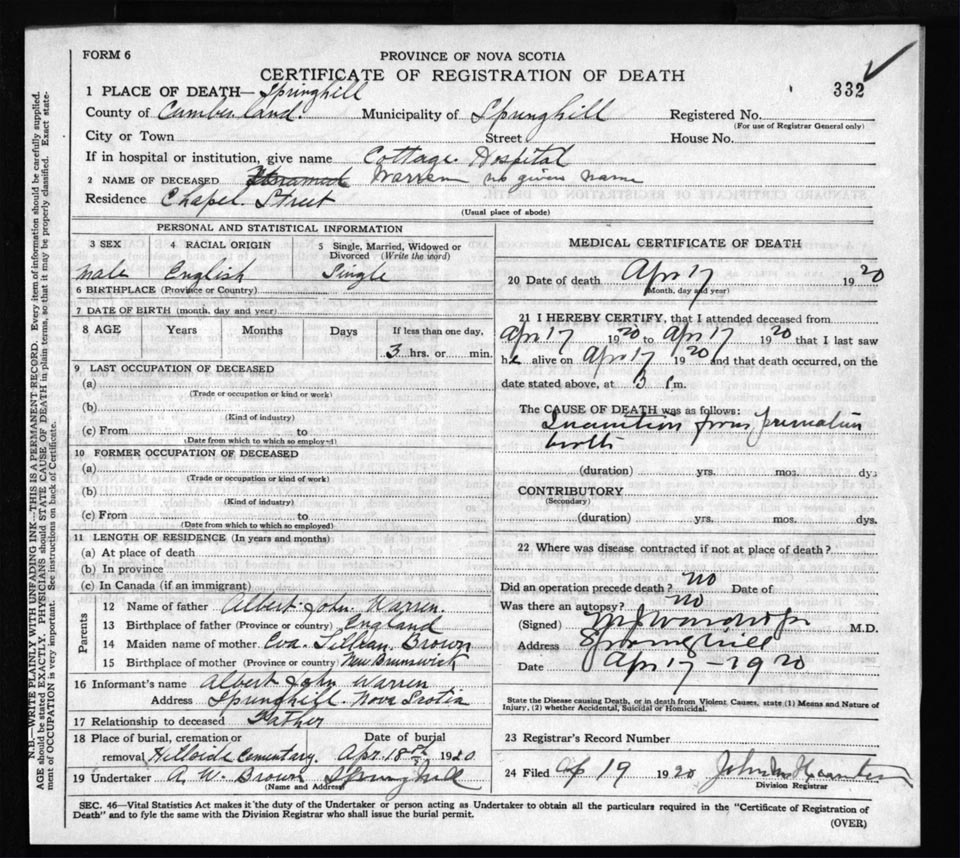 FORM 6
PROVINCE OF NOVA SCOTIA
CERTIFICATE OF REGISTRATION OF DEATH
332
1 PLACE OF DEATH— Springhill
County of Cumberland. Municipality of Springhill Registered No.
(For use of Registrar General only)
City or Town Street House No.
If in hospital or institution, give name Cottage Hospital
2 NAME OF DECEASED Unnamed Warren no given name
Residence Chapel Street
(Usual place of abode)
PERSONAL AND STATISTICAL INFORMATION
3 SEX 4 RACIAL ORIGIN 5 Single, Married, Widowed or Divorced (Write the word)
male English Single
6 BIRTHPLACE (Province or Country)
7 DATE OF BIRTH (month, day and year)
8 AGE Years Months Days If less than one day,
3 hrs. or min.
9 LAST OCCUPATION OF DECEASED
(a)
(Trade or occupation or kind or work)
(b)
(Kind of industry)
(c) From to
(Date from which to which so employed)
10 FORMER OCCUPATION OF DECEASED
(a)
(Trade or occupation or kind of work)
(b)
(Kind of industry)
(c) From to
(Date from which to which so employed)
11 LENGTH OF RESIDENCE (In years and months)
(a) At place of death
(b) In province
(c) In Canada (if an immigrant)
Parents
12 Name of father Albert John Warren.
13 Birthplace of father (Province or country) England
14 Maiden name of mother Eva Lillian Brown
15 Birthplace of mother (Province or country) New Brunswick
16 Informant's name Albert John Warren
Address Springhill Nova Scotia
17 Relationship to deceased Father
18 Place of burial, cremation or Date of burial
removal Hillside Cementary. Apr. 18th 1920.
19 Undertaker A. W. Brown Springhill
(Name and Address)
MEDICAL CERTIFICATE OF DEATH
20 Date of death Apr 17 1920
(Month, day and year)
21 I HEREBY CERTIFY, that I attended deceased from
Apr 17 1920 to Apr 17 1920 that I last saw
he alive on Apr 17 1920 and that death occurred, on the
date stated above, at 3 P.m.
The CAUSE OF DEATH was as follows:
Inanition from premature
birth
(duration) yrs. mos. dys
CONTRIBUTORY
(Secondary)
(duration) yrs. mos. dys.
22 Where was disease contracted if not at place of death?
Did an operation precede death? no Date of
Was there an autopsy? no
(Signed) M.D.
Address Springhill
Date Apr 17 – 1920
State the Disease causing Death, or in death from Violent Causes, state (1) Means and Nature of
Injury, (2) whether Accidental, Suicidal or Homicidal.
23 Registrar's Record Number
24 Filed Ap 19 1920 John
Division Registrar
SEC. 46—Vital Statistics Act makes it the duty of the Undertaker or person acting as Undertaker to obtain all the particulars required in the "Certificate of Registration of
Death" and to fyle the same with the Division Registrar who shall issue the burial permit.
(OVER)
N.B.—WRITE PLAINLY WITH UNFADING INK—THIS IS A PERMANENT RECORD. Every item of information should be carefully supplied.
AGE should be stated EXACTLY. PHYSICIANS should STATE CAUSE OF DEATH in plain terms, so that it may be properly classified. Exact state-
ment of OCCUPATION is very important. See instructions on back of Certificate.